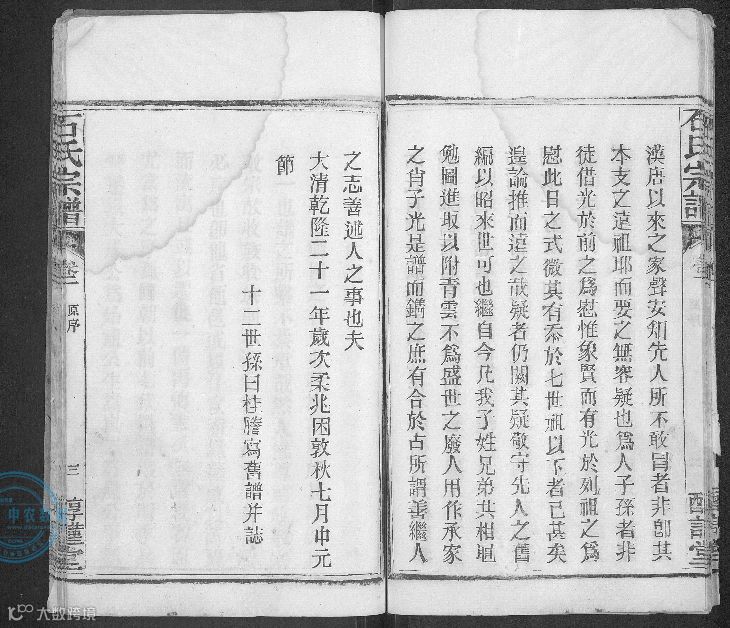 漢唐以來之家聲安知先人所不敢冒者非即其
本支之遠祖耶而要之無容疑也為人子孫者非
徒借光於前之為慰惟象賢而有光於列祖之為
慰此日之式微其有忝於七世祖以下者已甚矣
遑論推而遠之哉疑者仍闕其疑敬守先人之舊
編以昭來世可也繼自今凡我子姓兄弟共相
勉圖進取以附青雲不為盛世之廢人用作承家
之肖子光是譜而鐫之庶有合於古所謂善繼人
之志善述人之事也夫
大清乾隆二十一年歲次柔兆困敦秋七月中元
節
十二世孫曰桂謄寫舊譜并誌
石氏宗譜
卷一
原序
三
惇謹堂
大数跨境